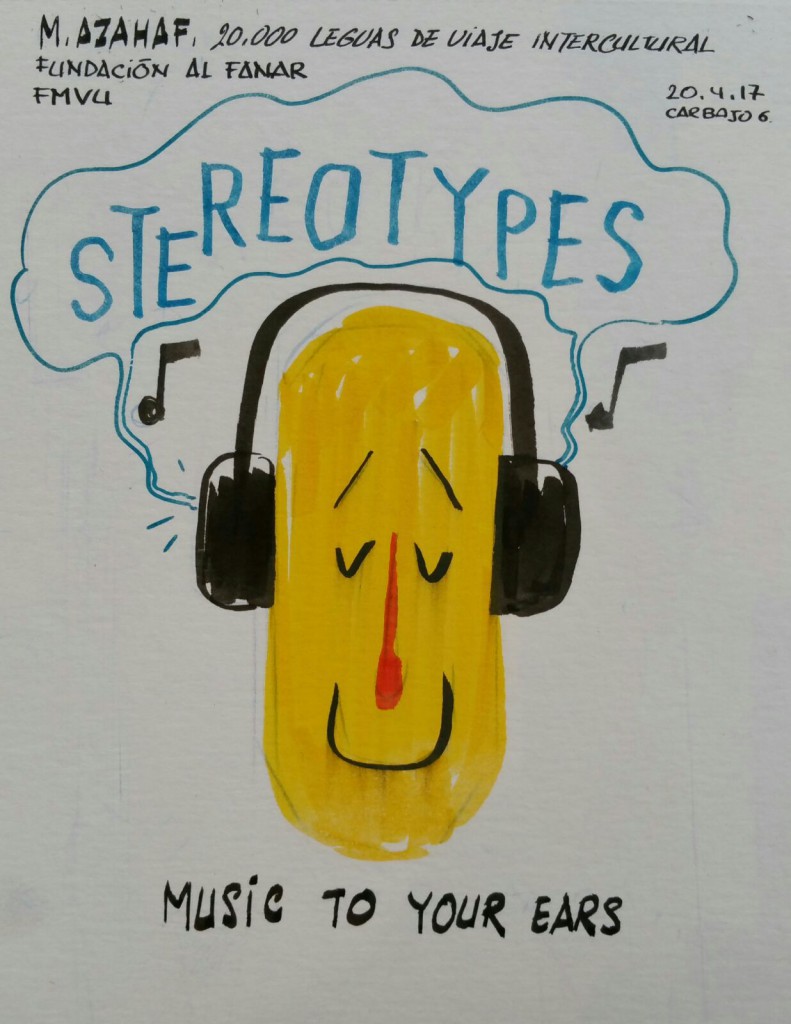 M. AZAHAF. 20.000 LEGUAS DE VIAJE INTERCULTURAL
FUNDACIÓN AL FANAR
FMVU
20.4.17
CARBAJO G.
STEREOTYPES
MUSiC TO YOUR EARS